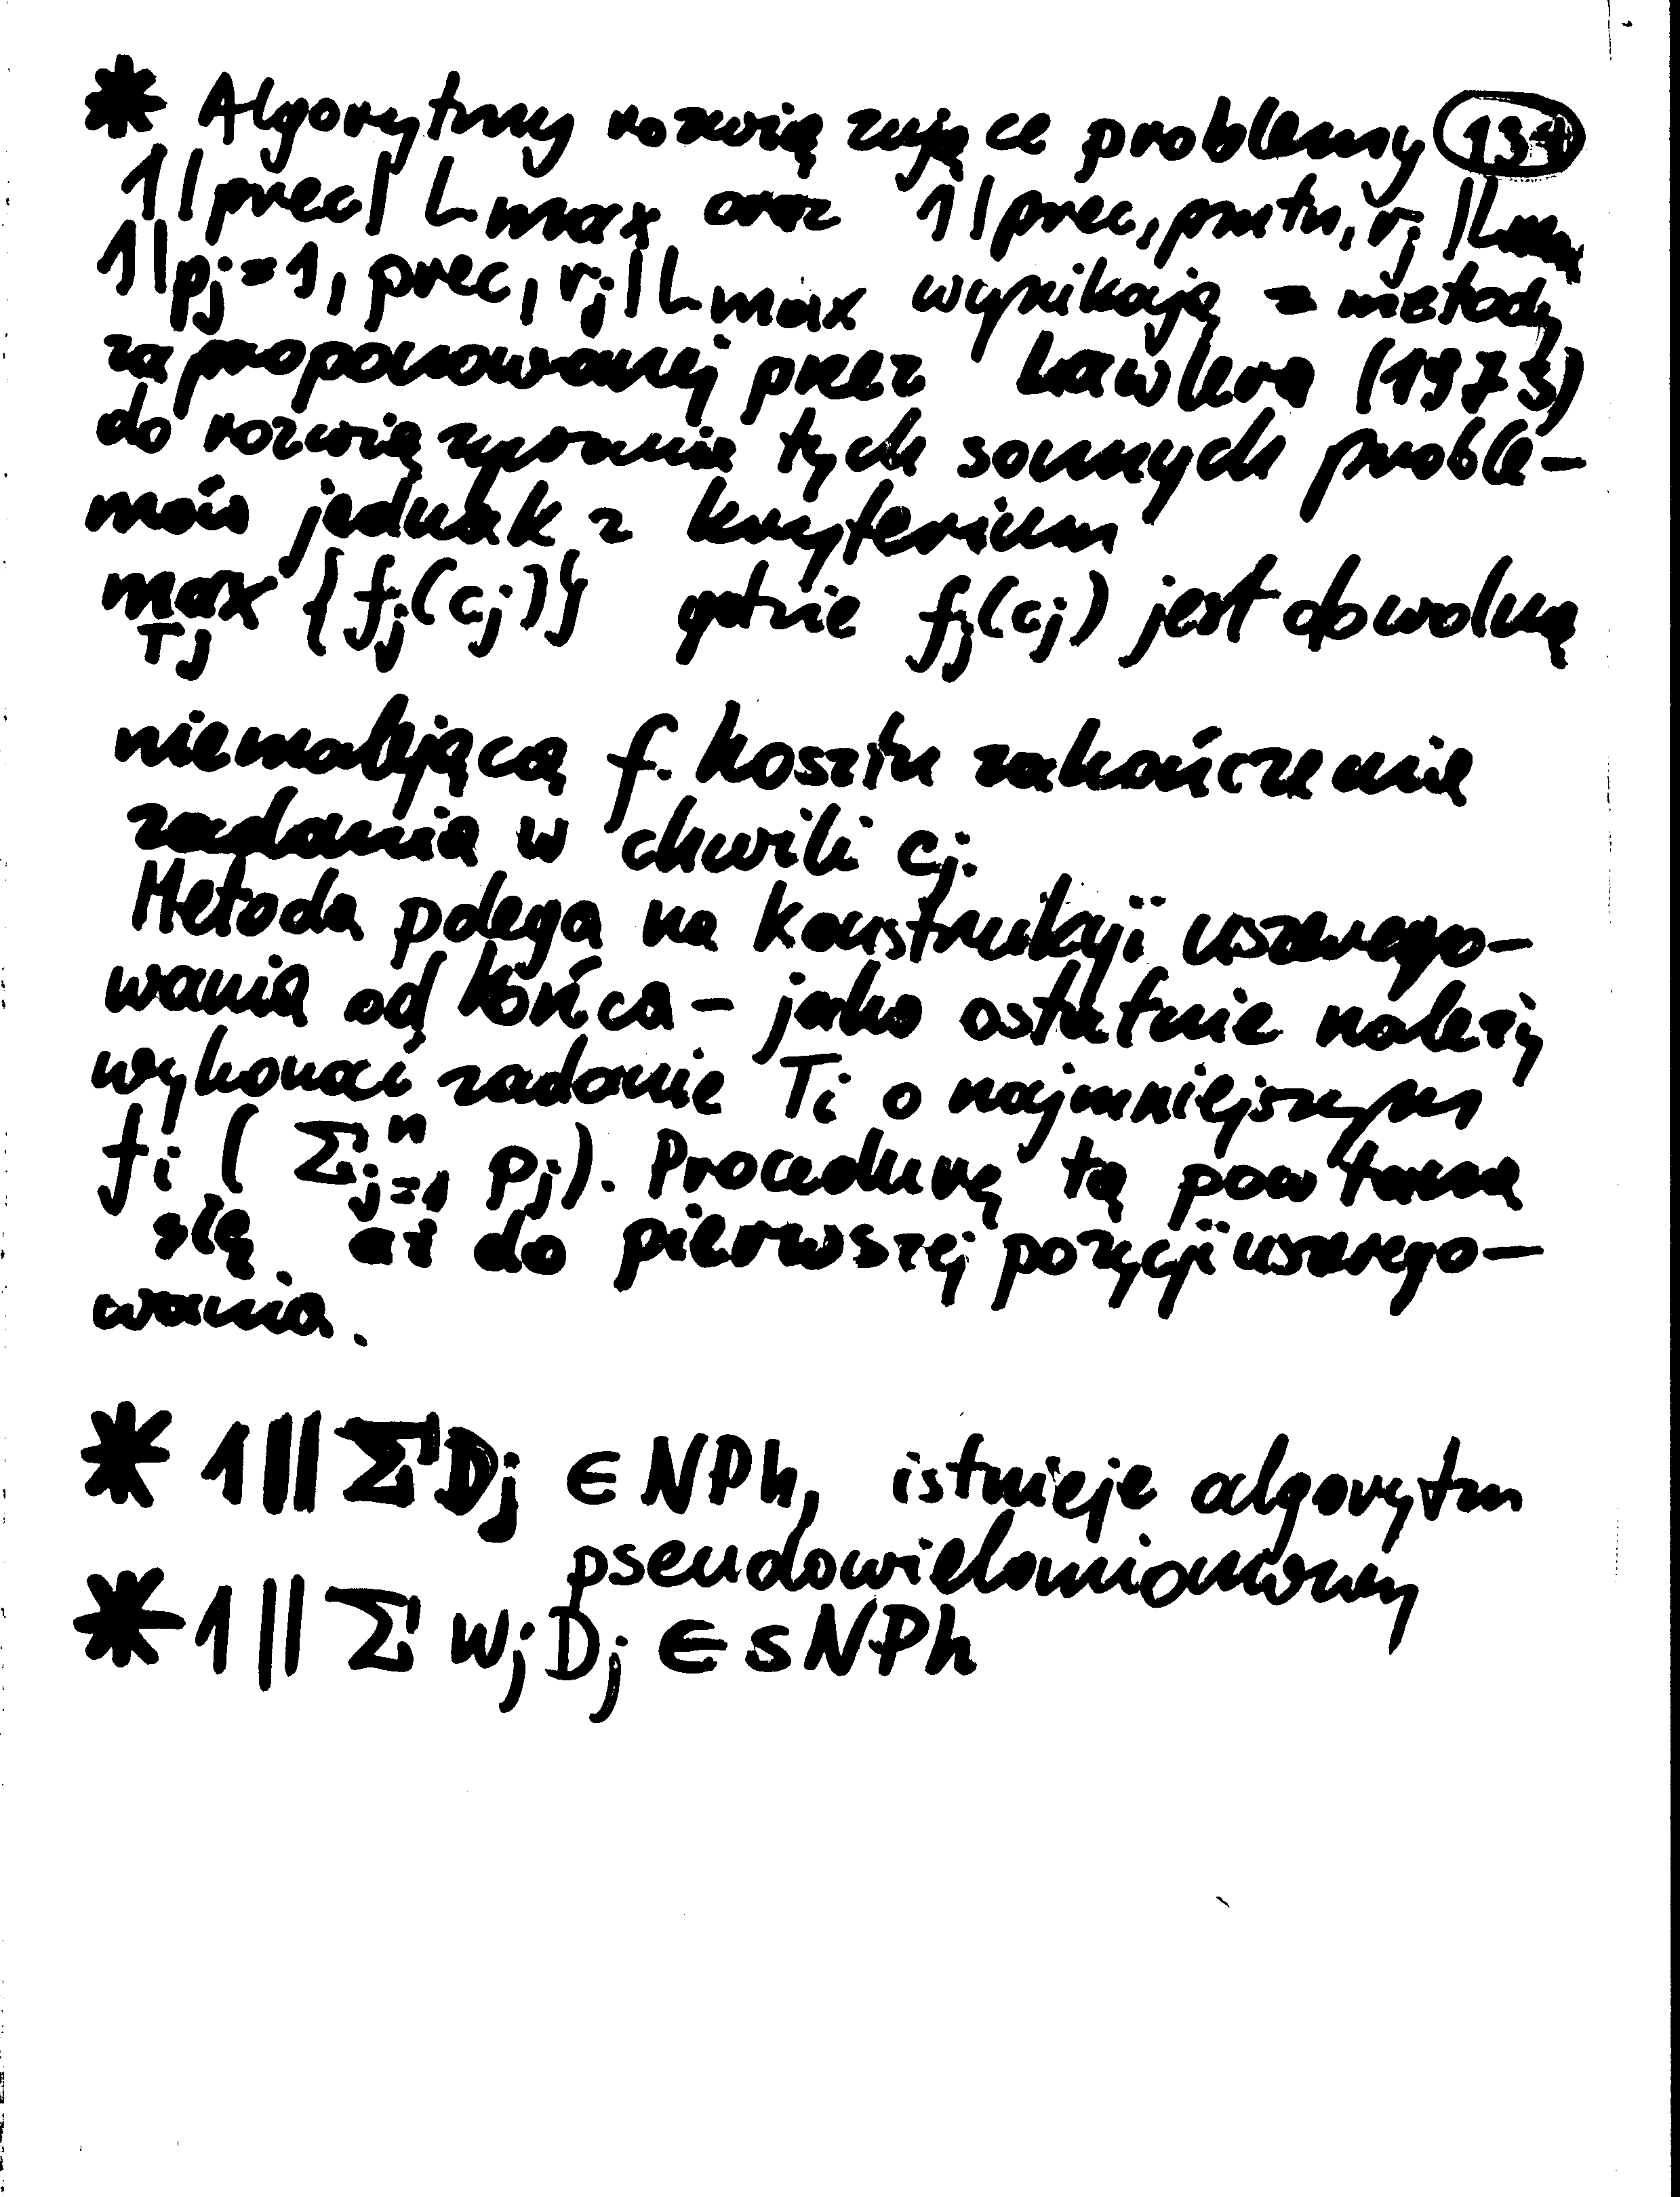 * Algorytmy rozwiązujące problemy 134
1|prec| Lmax oraz 1|prec, pmtn, rj |Lmax
1|pj=1, prec, rj|Lmax wynikają z metody
zaproponowanej przez Lawlera (1973)
do rozwiązywania tych samych proble-
mów jednak z kryterium
max {fj(cj)} gdzie fj(cj) jest dowolną
Tj
niemalejącą f. kosztu zakończenia
zadania w chwili cj.
Metoda polega na konstrukcji uszerego-
wania od końca - jako ostatnie należy
wykonać zadanie Ti o najmniejszym
fi ( Σⁿj=1 pj). Procedurę tą powtarza
się aż do pierwszej pozycji uszerego-
wania.
* 1||ΣDj ∈ NPh, istnieje algorytm
pseudowielomianowy
* 1||Σ wjDj ∈ sNPh